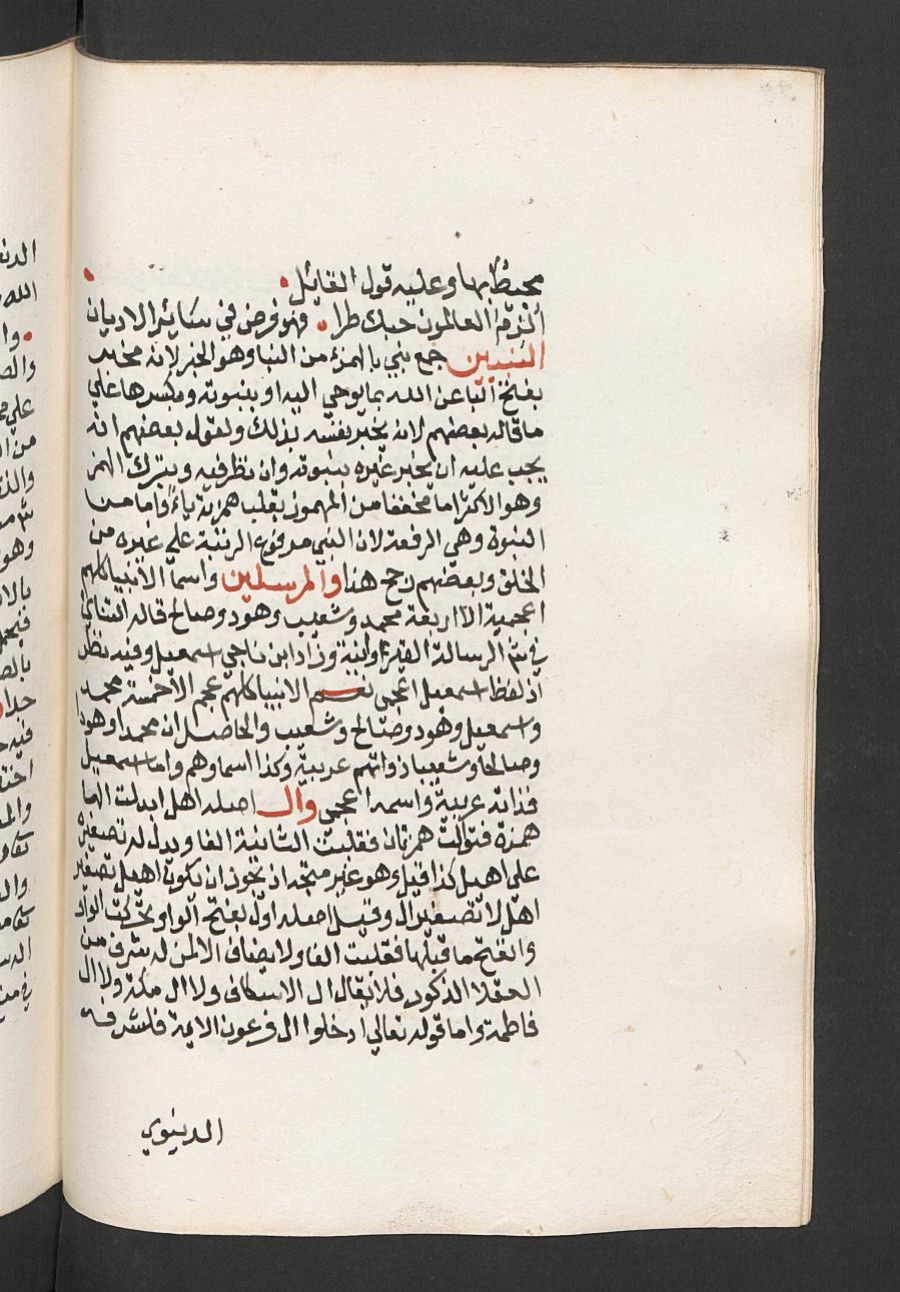 محيط بها وعليه قول القائل
ألزم العالمون حبك طرا • فهو فرض في سائر الاديان
النبيين جمع نبي بالهمزء من النبا وهو الخبر لانه مخبر
بفتح البا عن الله بما يوحي اليه او بنبوته وبكسرها علي
ما قاله بعضهم لانه يخبر بفسه بذلك ولقول بعضهم انه
يجب عليه ان يخبر غيره بنبوته وان نظر فيه وبترك الهمز
وهو الاكثر اما مخففا من المهموز بقلب همزته ياءً واما من
النبوة وهي الرفعة لان النبي مرفوع الرتبة علي غيره من
الخلق وبعضهم رجح هذا والمرسلين واسما الانبيا كلهم
اعجمية الا اربعة محمد وشعيب وهود وصالح قاله التتاي
في شر الرسالة القيروانية وزاد ابن ناجي اسمعيل وفيه نظر
اذ لفظ اسمعيل اعجمي نعم الانبيا كلهم عجم الا خمسة محمد
واسمعيل وهود وصالح وشعيب والحاصل ان محمدا وهود
وصالحا وشعيبا ذواتهم عربية وكذا اسماوهم واما اسمعيل
فذاته عربية واسمه اعجمي وال اصله اهل ابدلت الها
همزة فتوالت همزتان فقلبت الثانية الفا ويدل له تصغيره
علي اهيل كذا قيل وهو غير متجه اذ يجوز ان يكون اهيل تصغير
اهل لا تصغير ال وقيل اصله اول بفتح الواو تحركت الواو
وانفتح ما قبلها فقلبت الفا ولا يضاف الا لمن له شرف من
العقلا الذكور فلا يقال ال الاسكافي ولا ال مكة ولا ال
فاطمة واما قوله تعالي ادخلوا ال فرعون الاية فلشرفه
الدينوي